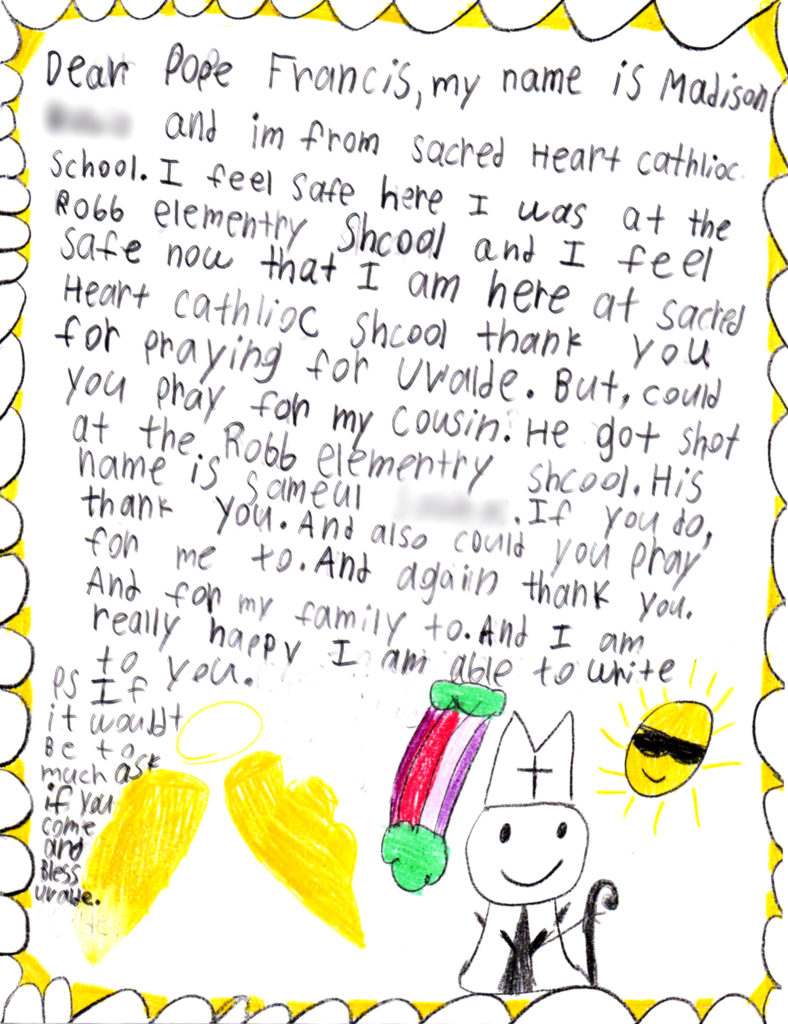 Dear Pope Francis, my name is Madison
and im from sacred Heart cathlioc
school. I feel safe here I was at the
Robb elementry Shcool and I feel
safe now that I am here at sacred
Heart cathlioc shcool thank you
for praying for uvalde. But, could
you pray for my cousin. He got shot
at the Robb elementry shcool. His
name is sameul . If you do,
thank you. And also could you pray
for me to. And agaiin thank you.
And for my family to. And I am
really happy I am able to write
to you.
PS If
it wouldt
Be to
much ask
if you
come
and
Bless
uvalde.